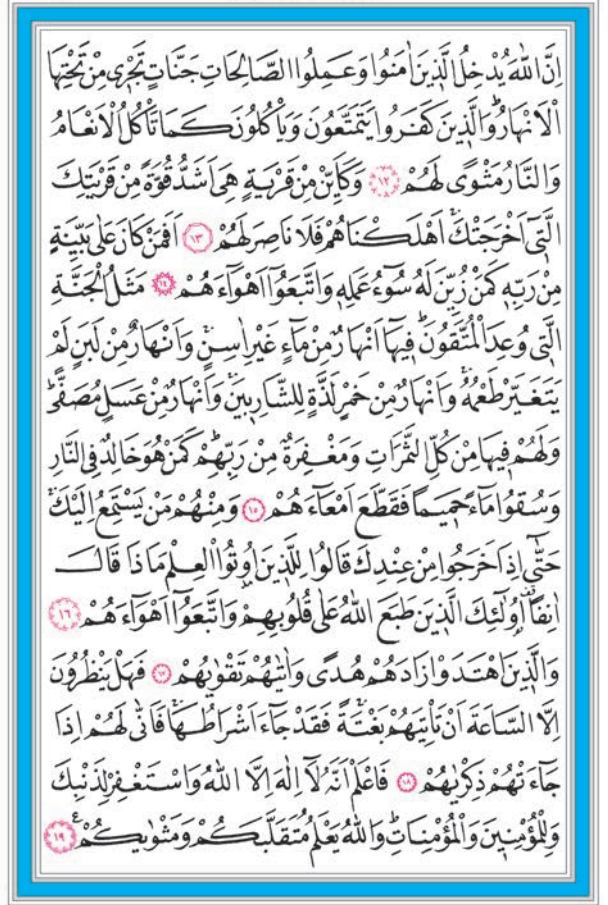 اِنَّ اللّٰهَ يُدْخِلُ الَّذ۪ينَ اٰمَنُوا وَعَمِلُوا الصَّالِحَاتِ جَنَّاتٍ تَجْر۪ي مِنْ تَحْتِهَا
الْاَنْهَارُۜ وَالَّذ۪ينَ كَفَرُوا يَتَمَتَّعُونَ وَيَأْكُلُونَ كَمَا تَأْكُلُ الْاَنْعَامُ
وَالنَّارُ مَثْوًى لَهُمْ ﴿١٢﴾ وَكَاَيِّنْ مِنْ قَرْيَةٍ هِيَ اَشَدُّ قُوَّةً مِنْ قَرْيَتِكَ
الَّت۪ٓي اَخْرَجَتْكَۚ اَهْلَكْنَاهُمْ فَلَا نَاصِرَ لَهُمْ ﴿١٣﴾ اَفَمَنْ كَانَ عَلٰى بَيِّنَةٍ
مِنْ رَبِّه۪ كَمَنْ زُيِّنَ لَهُ سُٓوءُ عَمَلِه۪ وَاتَّبَعُٓوا اَهْوَٓاءَهُمْ ﴿١٤﴾ مَثَلُ الْجَنَّةِ
الَّت۪ي وُعِدَ الْمُتَّقُونَۜ ف۪يهَٓا اَنْهَارٌ مِنْ مَٓاءٍ غَيْرِ اٰسِنٍۚ وَاَنْهَارٌ مِنْ لَبَنٍ لَمْ
يَتَغَيَّرْ طَعْمُهُۚ وَاَنْهَارٌ مِنْ خَمْرٍ لَذَّةٍ لِلشَّارِب۪ينَۚ وَاَنْهَارٌ مِنْ عَسَلٍ مُصَفًّىۜ
وَلَهُمْ ف۪يهَا مِنْ كُلِّ الثَّمَرَاتِ وَمَغْفِرَةٌ مِنْ رَبِّهِمْۜ كَمَنْ هُوَ خَالِدٌ فِي النَّارِ
وَسُقُوا مَٓاءً حَم۪يمًا فَقَطَّعَ اَمْعَٓاءَهُمْ ﴿١٥﴾ وَمِنْهُمْ مَنْ يَسْتَمِعُ اِلَيْكَۚ
حَتّٰٓى اِذَا خَرَجُوا مِنْ عِنْدِكَ قَالُوا لِلَّذ۪ينَ اُو۫تُوا الْعِلْمَ مَاذَا قَالَ
اٰنِفًا۠ اُو۬لٰٓئِكَ الَّذ۪ينَ طَبَعَ اللّٰهُ عَلٰى قُلُوبِهِمْ وَاتَّبَعُٓوا اَهْوَٓاءَهُمْ ﴿١٦﴾
وَالَّذ۪ينَ اهْتَدَوْا زَادَهُمْ هُدًى وَاٰتٰيهُمْ تَقْوٰيهُمْ ﴿١٧﴾ فَهَلْ يَنْظُرُونَ
اِلَّا السَّاعَةَ اَنْ تَأْتِيَهُمْ بَغْتَةًۚ فَقَدْ جَٓاءَ اَشْرَاطُهَاۚ فَاَنّٰى لَهُمْ اِذَا
جَٓاءَتْهُمْ ذِكْرٰيهُمْ ﴿١٨﴾ فَاعْلَمْ اَنَّهُ لَٓا اِلٰهَ اِلَّا اللّٰهُ وَاسْتَغْفِرْ لِذَنْبِكَ
وَلِلْمُؤْمِن۪ينَ وَالْمُؤْمِنَاتِۜ وَاللّٰهُ يَعْلَمُ مُتَقَلَّبَكُمْ وَمَثْوٰيكُمْ۟ ﴿١٩﴾